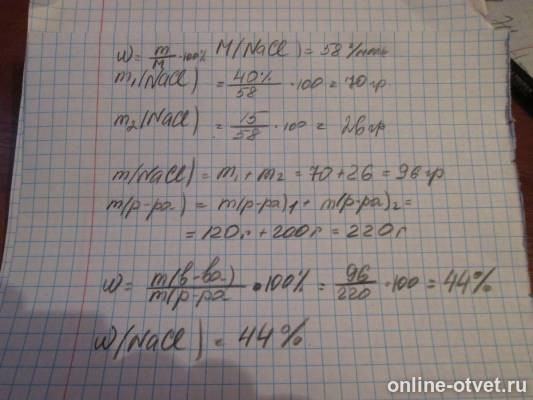 ω = m/M · 100% M(NaCl) = 58 г/моль
m₁(NaCl) = 40%/58 · 100 = 70 гр.
m₂(NaCl) = 15/58 · 100 = 26 гр.
m(NaCl) = m₁ + m₂ = 70 + 26 = 96 гр
m(р-ра) = m(р-ра)₁ + m(р-ра)₂ =
= 120г + 200г = 220г
ω = m(в-ва)/m(р-ра · 100% = 96/220 · 100 = 44%
ω(NaCl) = 44%
online-otvet.ru